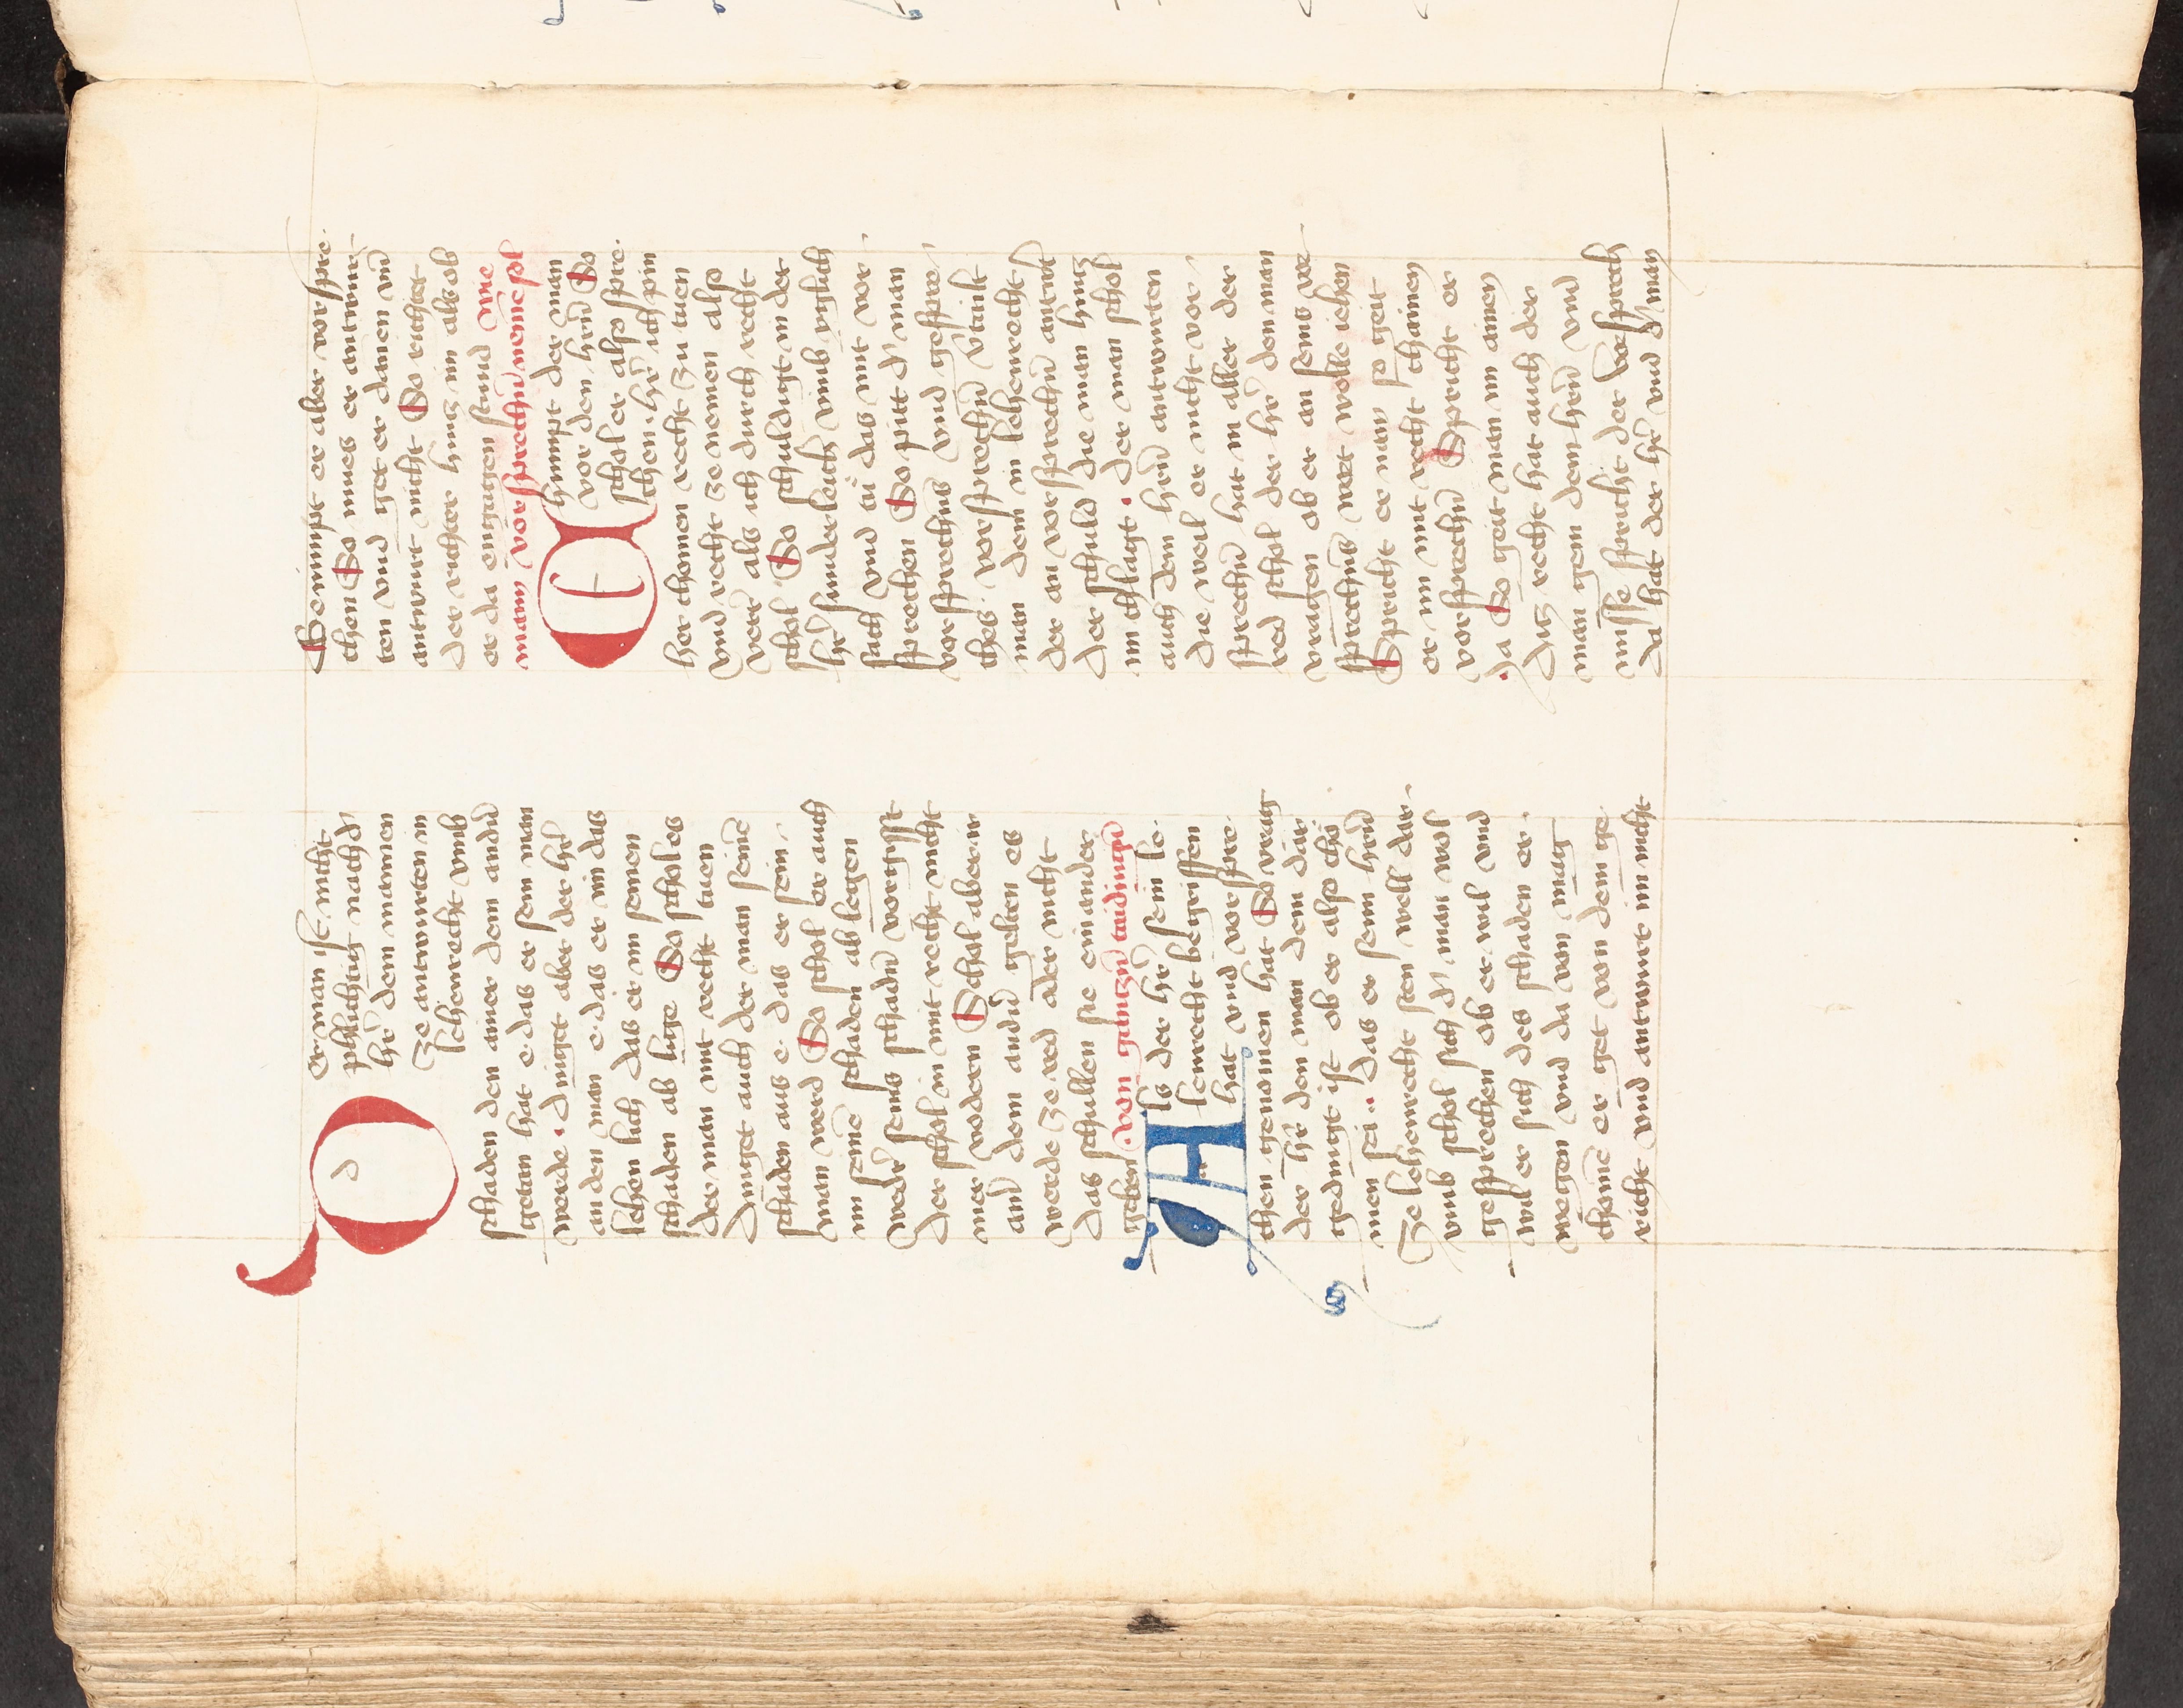 Der man ist nicht
phlichtig nach dˢ
hˢr dem mannen
ze antwurten in
lehenrecht vmb
schaden den ainer dem andˢn
getan hat e das er sein man
werde · dinget aber der hˢr
an den man e das er im das
lehen lich das er im seinen
schaden ab lege So schol es
der man mit recht tuen
Dinget auch der man seinē
schaden aus e das er sein
man werd So schol er auch
im seinē schaden ab legen
wedˢr seins schadˢn vorgisst
der schol in mit recht nicht
mer vodern Schol aber in
ain dem andˢn gelten es
werde ze red oder nicht
das schullen sie einander
gelten von gantzˢn taidingˢn
Als der hˢr sein le
lenrecht begriffen
hat vnd vorspre
chen genomen hat So vrag
der hˢr den man dem dar
gedingt ist ob er alß cho
men sei · das er seim hˢrn
ze lehenrecht sten well dar
vmb schol sich dˢ man wol
gesprechen ob er wil vnd
wil er sich des schaden er
wegen vnd da von mag
chomē er get von dem ge
richt vnd antwurt im nicht
Benimpt er aber vorspre
chen So mues er antwur
ten vnd get er dannen vnd
antwurt nicht So richtet
der richter hintz im als ob
er da engagen stund wie
man vorsprechˢn nemē schl
Chumpt der man
vor den hˢrn So
schol er alß spre
chen hˢr ich pin
her chomen recht zu tuen
vnd recht ze nemen alß
verr als ich durch recht
schol So schuldigt in der
hˢr sunderleich vmb igleich
sach vnd tů das mit vor
sprechen So pitt dˢ man
vorsprechens vnd gespre
ches vorsprechˢn vrlaubt
man dem in lehenrecht
der an vorsprechˢn antwˢt
der schuld die man hintz
im chlagt · der man schol
auch dem hˢrn antwurten
die weil er nicht vor
sprechˢn hat in aller der
red schol der hˢr den man
vragen ob er an seins vor
sprechˢns wort wolle iehen
Spricht er nain so geit
er im mit recht chainen
vorsprechˢn Spricht er
ia So geit man im ainen
ditz recht hat auch der
man gein dem hˢrn vnd
missespricht der vorsprech
da hat der hˢr vnd dˢ man